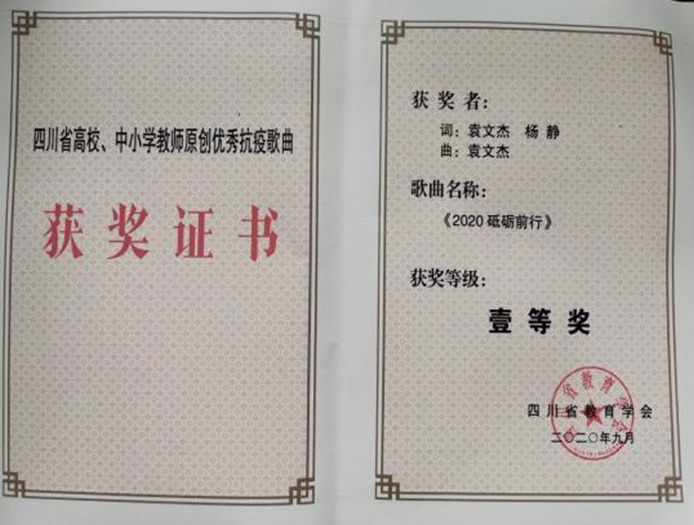 四川省高校、中小学教师原创优秀抗疫歌曲
获奖证书
获奖者:
词:袁文杰 杨静
曲:袁文杰
歌曲名称:
《2020 砥砺前行》
获奖等级:
壹等奖
四川省教育学会
二〇二〇年九月